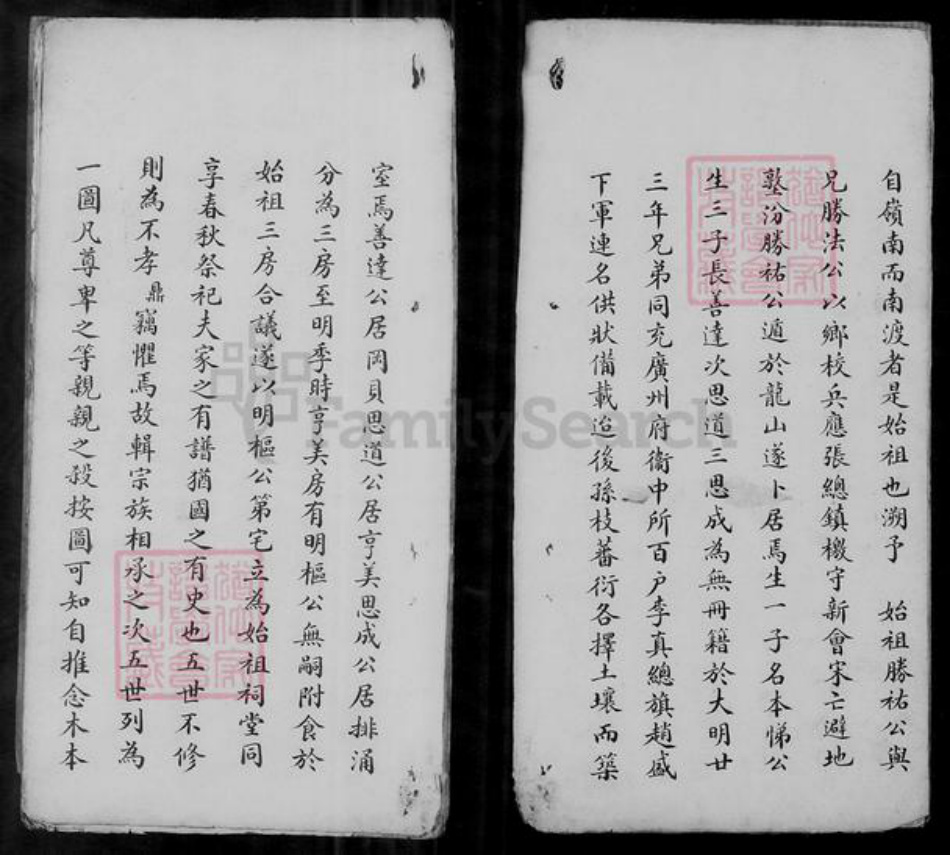 自嶺南而南渡者是始祖也溯予　始祖勝祐公與
兄勝法公以鄉校兵應張總鎮檄守新會宋亡避地
塾汾勝祐公遁於龍山遂卜居焉生一子名本悌公
生三子長善達次思道三思成為無冊籍於大明廿
三年兄弟同充廣州府衛中所百户李真總旗趙盛
下軍連名供狀備載迨後孫枝蕃衍各擇土壤而築
室焉善達公居岡貝思道公居亨美思成公居排涌
分為三房至明季時亨美房有明樞公無嗣附食於
始祖三房合議遂以明樞公第宅立為始祖祠堂同
享春秋祭祀夫家之有譜猶國之有史也五世不修
則為不孝鼎竊懼焉故輯宗族相承之次五世列為
一圖凡尊卑之等親親之殺按圖可知自推念木本
FamilySearch